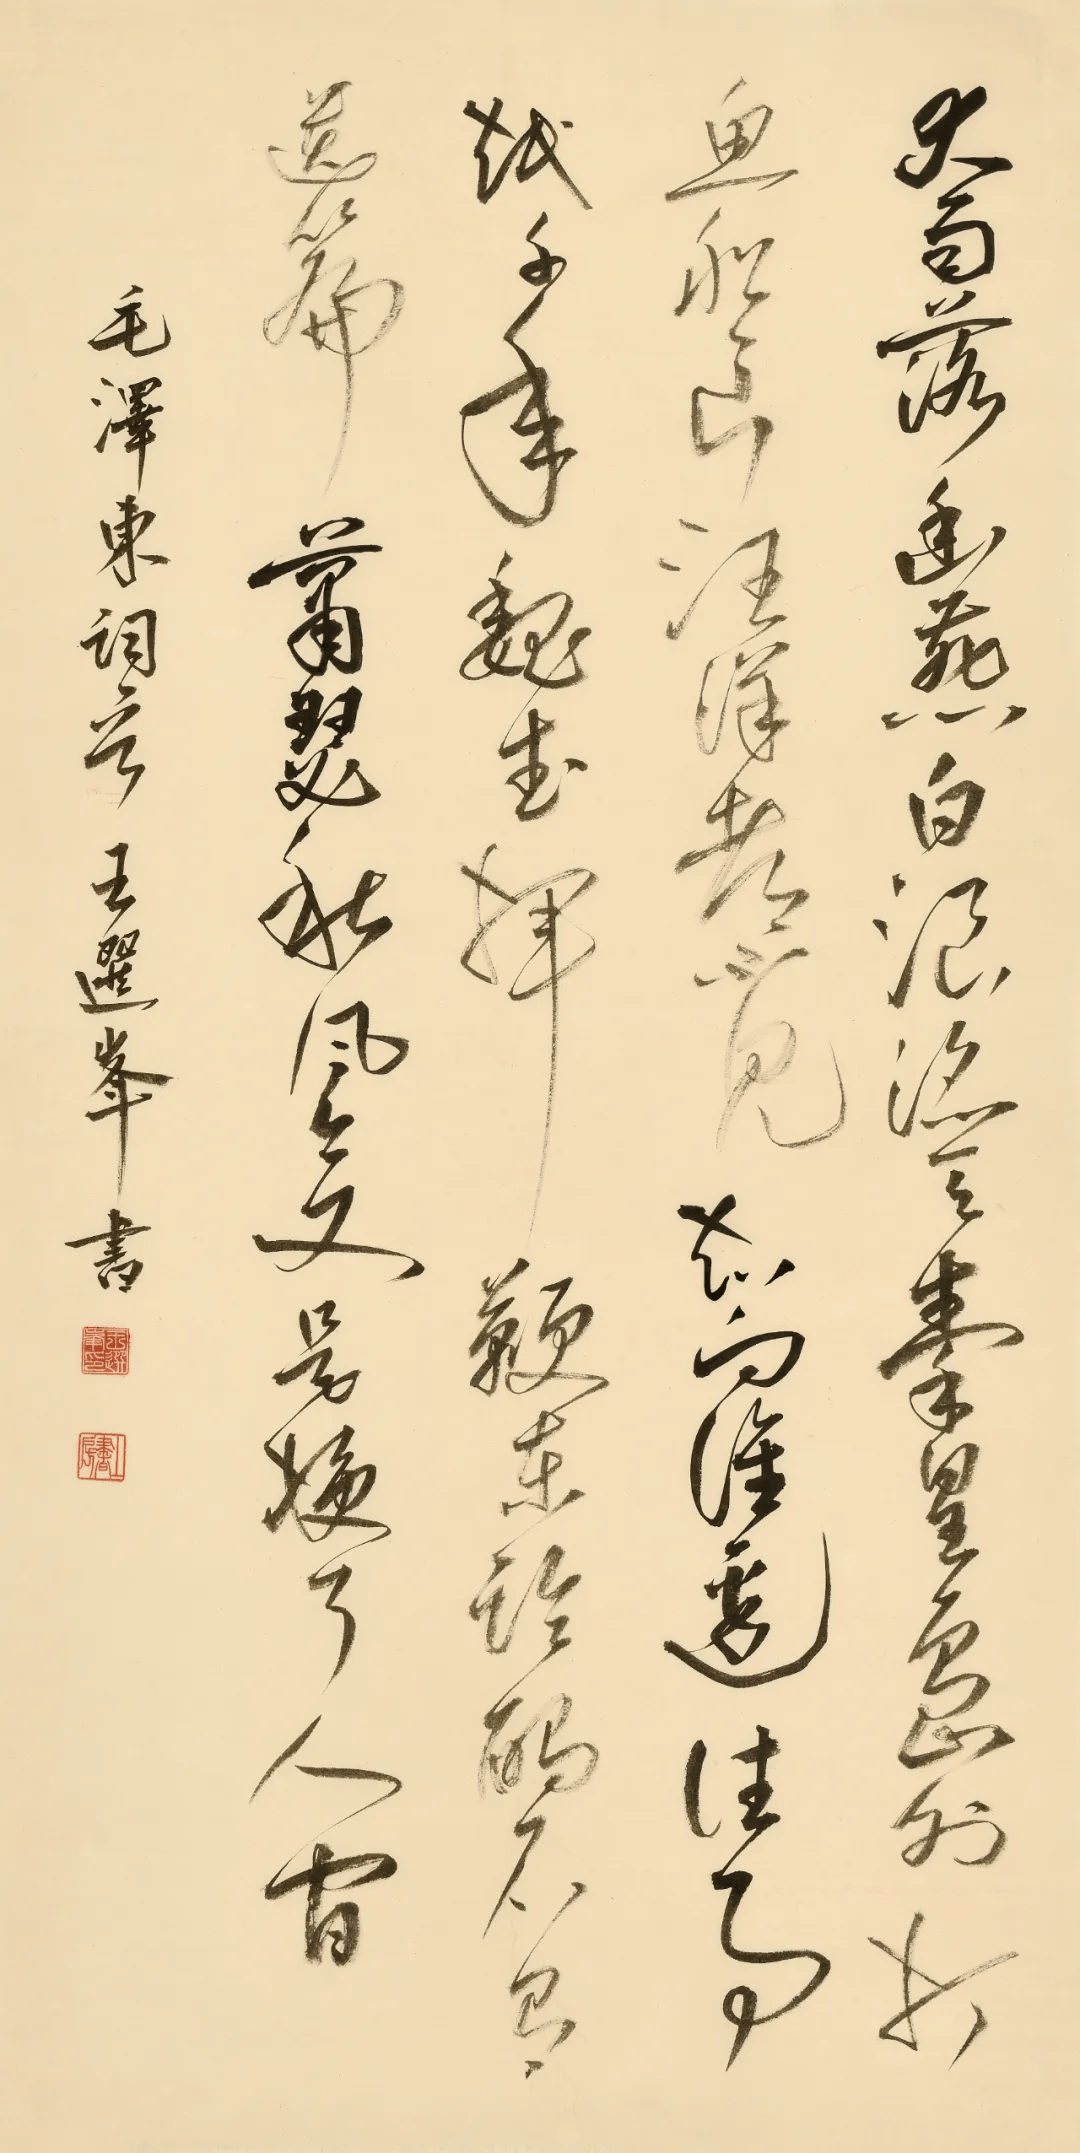 大雨落幽燕白浪滔天秦皇島外打
魚船一片汪洋都不見知向誰邊往事
越千年魏武揮鞭東臨碣石有
遺篇蕭瑟秋風今又是換了人間
毛澤東詞一首王選峯書